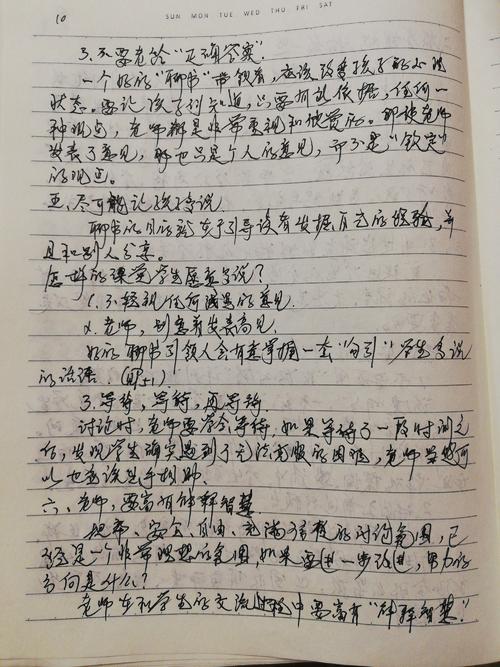 10
SUN MON TUE WED THU FRI SAT
3.不要老给“正确答案”
一个好的“聊书”带领者，应该改变孩子的心理
状态。要让孩子们知道，只要有依据，任何一
种观点，老师都是非常重视和欣赏的。即使老师
发表了意见，那也只是个人的意见，而不是“钦定”
的观点。
五、尽可能让孩子说
聊书的目的就在于引导读者发掘自己的经验，并
且和别人分享。
怎样的课堂学生愿意多说？
1.不轻视任何浅显的意见
2.老师，别急着发表高见
好的聊书引领人会有意掌握一套“勾引”学生多说
的话语.
3.等待，等待，再等待.
讨论时，老师要学会等待.如果等待了一段时间之
后，发现学生确实遇到了无法克服的困难，老师
以也应该出手相助.
六、老师，要富有解释智慧
把希、安全、自由、充满的讨论氛围，已
经是一个非常理想的氛围，如果要进一步改进，努力的
方向是什么？
老师在和学生的交流过程中要富有“解释智慧”.